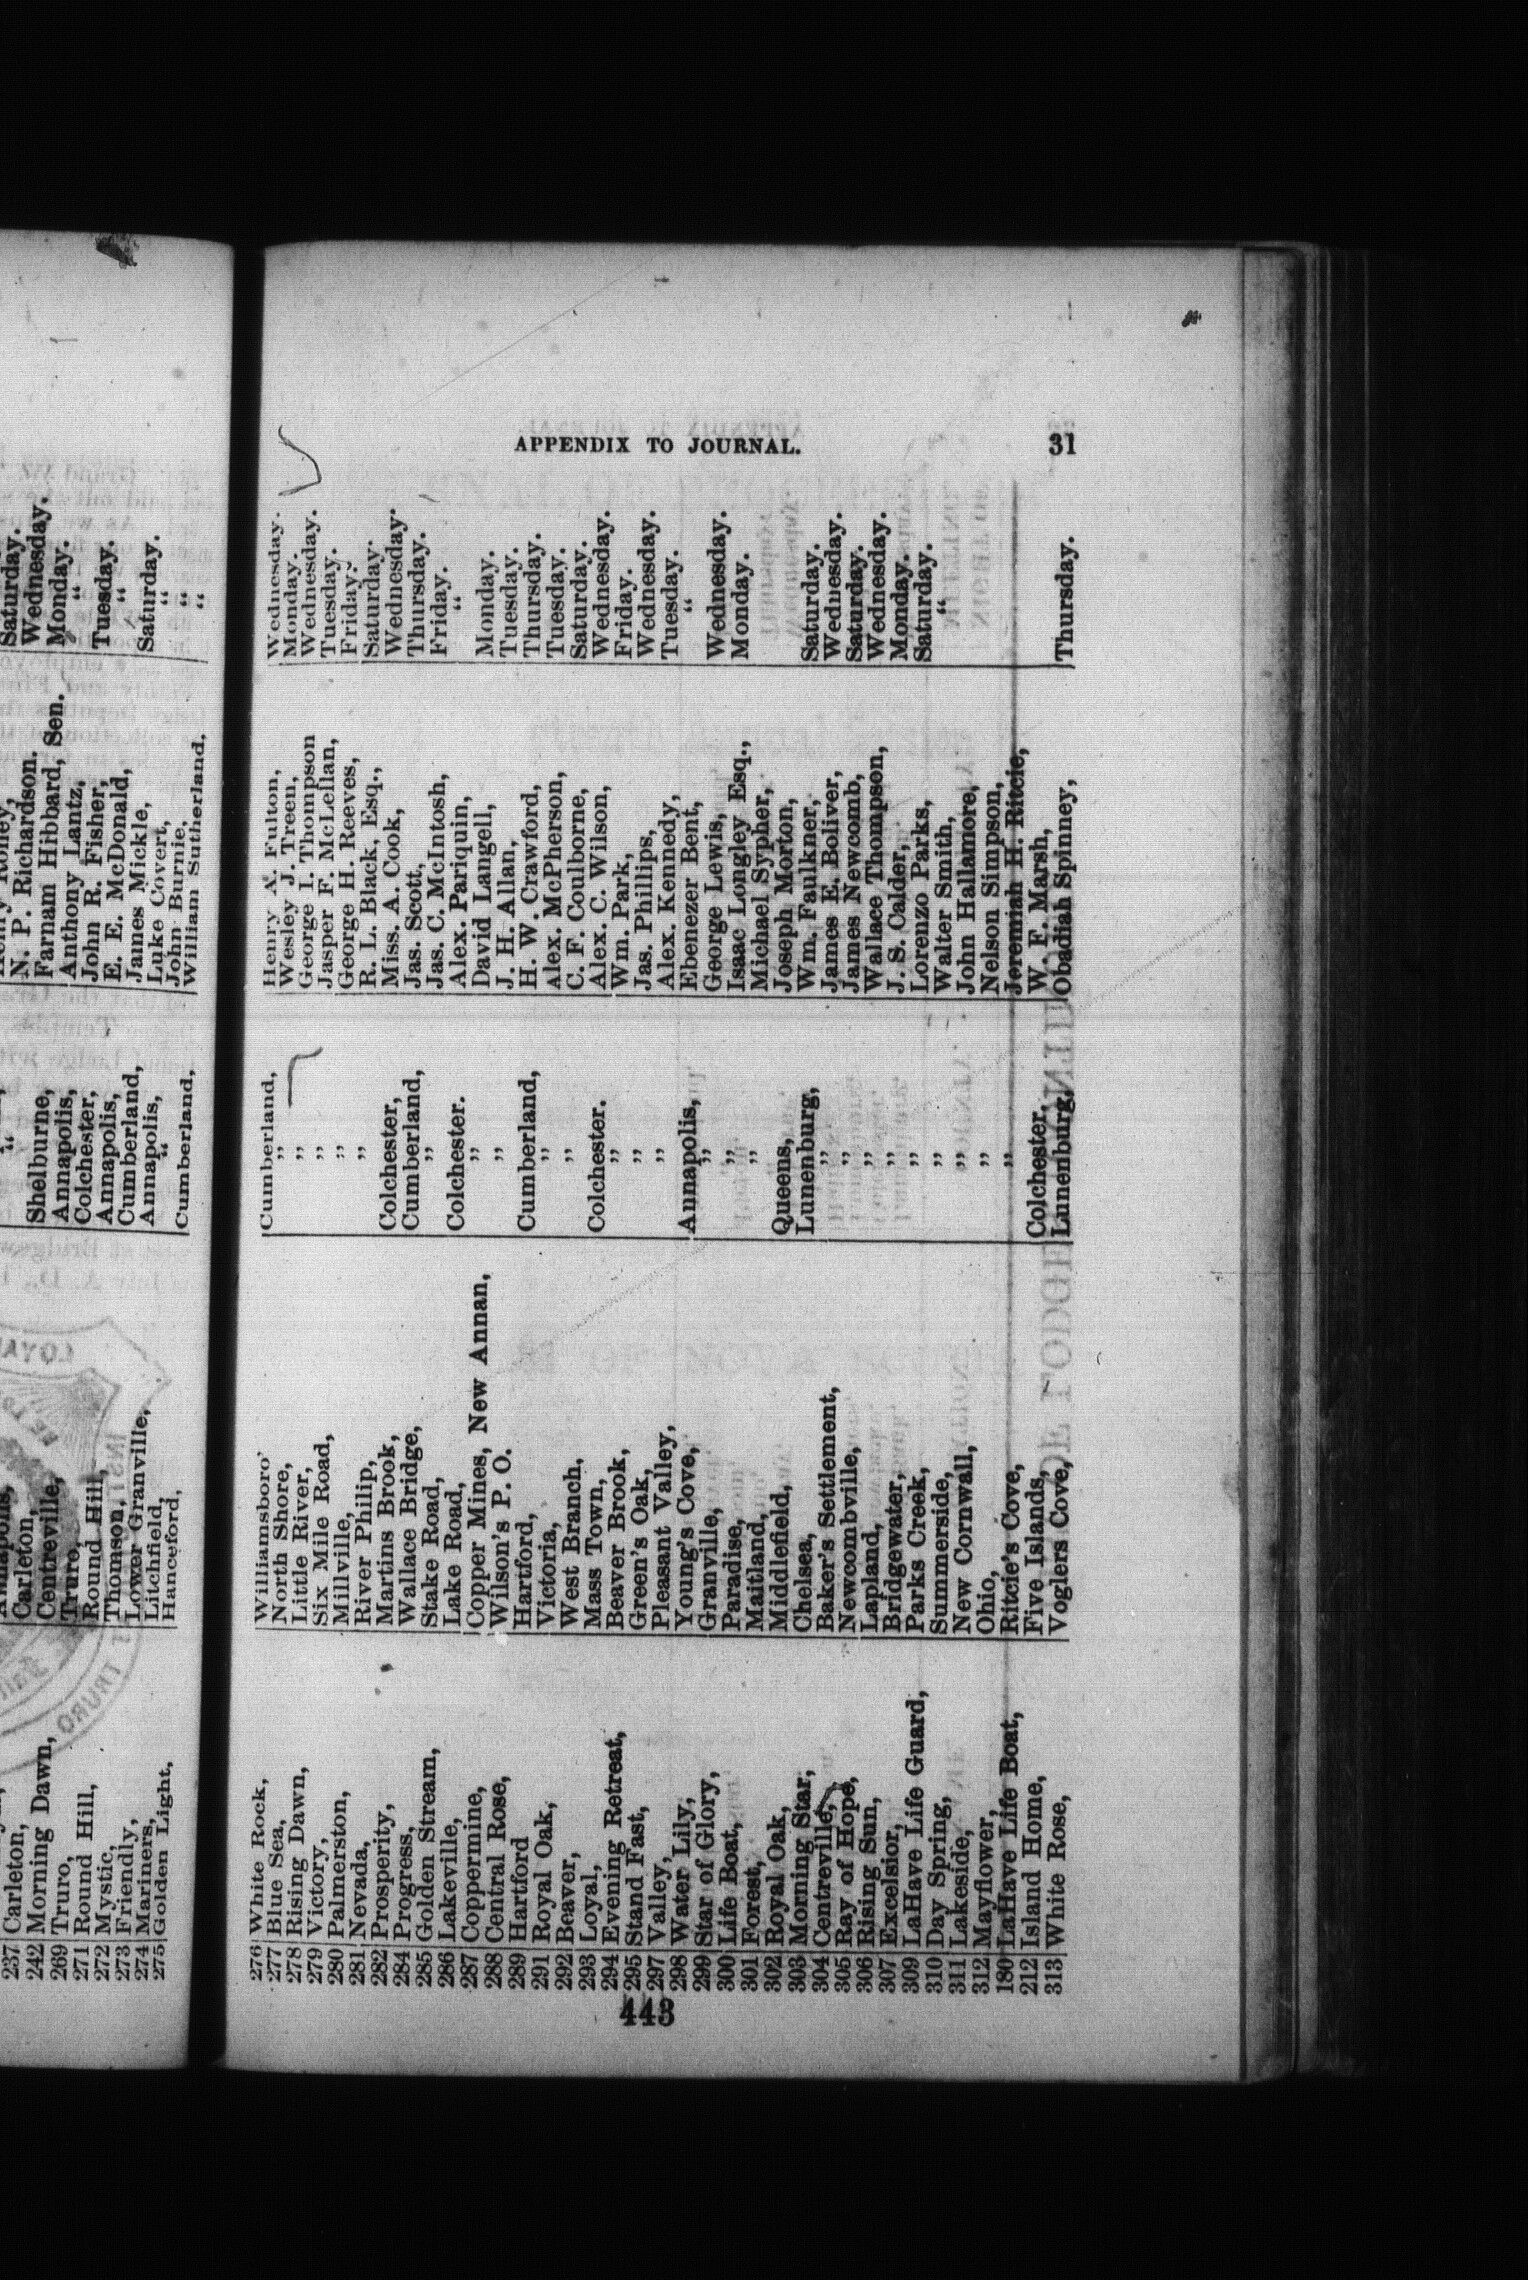 " N. P. Richardson. Wednesday.
237 Carleton, Carleton, Shelburne, Farnam Hibbard, Sen. Monday.
242 Morning Dawn, Centreville, Annapolis, Anthony Lantz, "
269 Truro, Ture, Colchester, John R. Fisher, Tuesday.
271 Round Hill, Round Hill, Annapolis, E. E. McDonald, "
272 Mystic, Thomson, Cumberland, James Mickle, Saturday.
273 Friendly, Lower Granville, Annapolis, Luke Covert, "
274 Mariners, Litchfield, " John Burnie, "
275 Golden Light, Hanceford, Cumberland, William Sutherland, "
APPENDIX TO JOURNAL. 31
276 White Rock, Williamsboro' Cumberland, Henry A. Fulton, Wednesday.
277 Blue Sea, North Shore, ,, Wesley J. Treen, Monday.
278 Rising Dawn, Little River, ,, George I. Thompson Wednesday.
279 Victory, Six Mile Road, ,, Jasper F. McLellan, Tuesday.
280 Palmerston, Millville, ,, George H. Reeves, Friday.
281 Nevada, River Philip, ,, R. L. Black, Esq., Saturday.
282 Prosperity, Martins Brook, Colchester, Miss. A. Cook, Wednesday.
284 Progress, Wallace Bridge, Cumberland, Jas. Scott, Thursday.
285 Golden Stream, Stake Road, ,, Jas. C. McIntosh, Friday.
286 Lakeville, Lake Road, Colchester. Alex. Pariquin, "
287 Coppermine, Copper Mines, New Annan, ,, David Langell, Monday.
288 Central Rose, Wilson's P. O. ,, J. H. Allan, Tuesday.
289 Hartford Hartford, Cumberland, H. W. Crawford, Thursday.
291 Royal Oak, Victoria, ,, Alex. McPherson, Tuesday.
292 Beaver, West Branch, ,, C. F. Coulborne, Saturday.
293 Loyal, Mass Town, Colchester. Alex. C. Wilson, Wednesday.
294 Evening Retreat, Beaver Brook, ,, Wm. Park, Friday.
295 Stand Fast, Green's Oak, ,, Jas. Phillips, Wednesday.
297 Valley, Pleasant Valley, ,, Alex. Kennedy, Tuesday.
298 Water Lily, Young's Cove, Annapolis, Ebenezer Bent, "
299 Star of Glory, Granville, ,, George Lewis, Wednesday.
300 Life Boat, Paradise, ,, Isaac Longley Esq., Monday.
301 Forest, Maitland, ,, Michael Sypher,
302 Royal Oak, Middlefield, Queens, Joseph Morton,
303 Morning Star, Chelsea, Lunenburg, Wm. Faulkner, Saturday.
304 Centreville, Baker's Settlement, ,, James E. Boliver, Wednesday.
305 Ray of Hope, Newcombville, ,, James Newcomb, Saturday.
306 Rising Sun, Lapland, ,, Wallace Thompson, Wednesday.
307 Excelsior, Bridgewater, ,, J. S. Calder, Monday.
309 LaHave Life Guard, Parks Creek, ,, Lorenzo Parks, Saturday.
310 Day Spring, Summerside, ,, Walter Smith, "
311 Lakeside, New Cornwall, ,, John Hallamore,
312 Mayflower, Ohio, ,, Nelson Simpson,
180 LaHave Life Boat, Ritcie's Cove, ,, Jeremiah H. Ritcie,
212 Island Home, Five Islands, Colchester, W. F. Marsh,
313 White Rose, Voglers Cove, Lunenburg, Obadiah Spinney, Thursday.
443